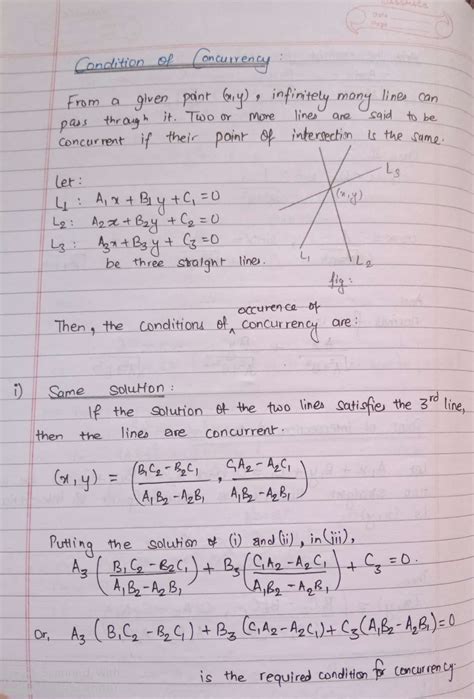 Condition of Concurrency :
From a given point (x,y), infinitely many lines can
pass through it. Two or more lines are said to be
concurrent if their point of intersection is the same.
Let :
L₁ : A₁x + B₁y + C₁ = 0
L₂ : A₂x + B₂y + C₂ = 0
L₃ : A₃x + B₃y + C₃ = 0
be three straight lines.
L₃
(x,y)
L₁
L₂
fig:
occurence of
Then, the conditions of ^ concurrency are:
i) Same solution :
If the solution of the two lines satisfies the 3rd line,
then the lines are concurrent.
(x,y) = (B₁C₂ - B₂C₁ / A₁B₂ - A₂B₁ , C₁A₂ - A₂C₁ / A₁B₂ - A₂B₁)
Putting the solution of (i) and (ii), in (iii),
A₃ (B₁C₂ - B₂C₁ / A₁B₂ - A₂B₁) + B₃ (C₁A₂ - A₂C₁ / A₁B₂ - A₂B₁) + C₃ = 0.
Or, A₃ (B₁C₂ - B₂C₁) + B₃ (C₁A₂ - A₂C₁) + C₃ (A₁B₂ - A₂B₁) = 0
is the required condition for concurrency.